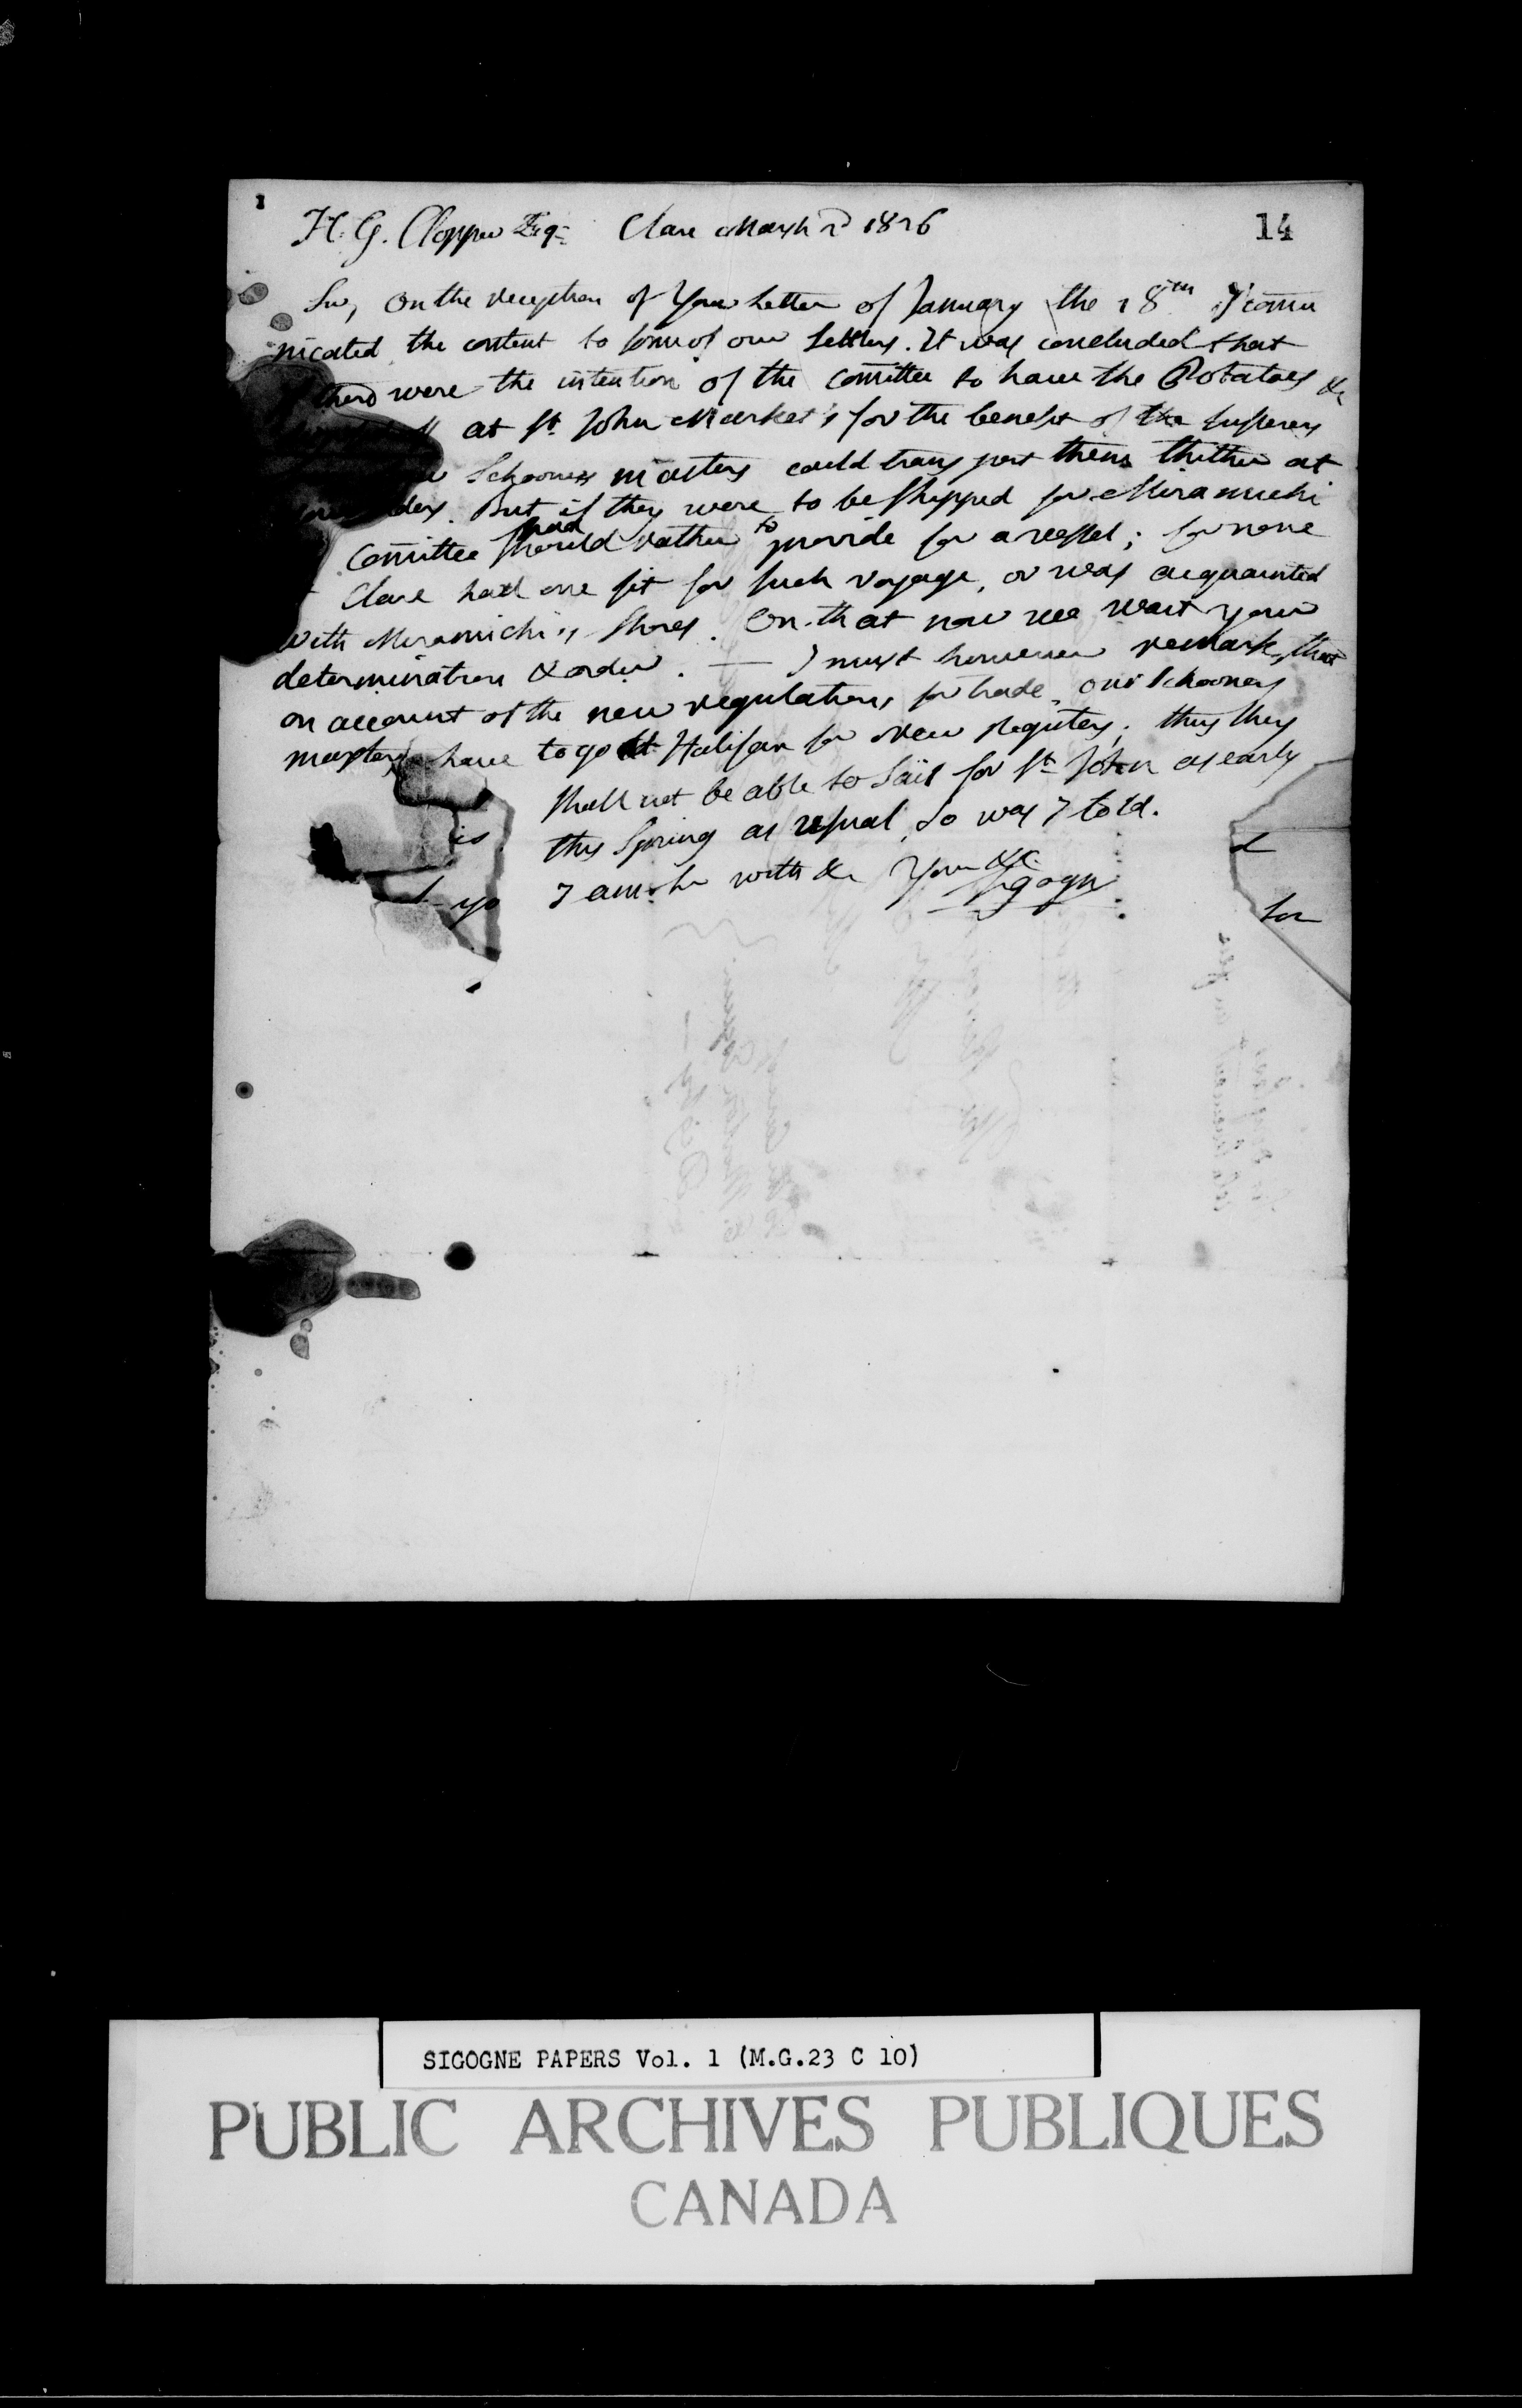 14
H. G. Clopper Esqr. Clare March 2d 1826
Sir, On the reception of Your Letter of January the 18th I com̄u
nicated the content to some of our Settlers. It was concluded that
were the intention of the com̄ittee to have the Potatoes &c
at St. John Market's for the benefit of the sufferers
Schooners masters could transport them thither at
But if they were to be shipped for Miramichi
Com̄ittee should rather to provide for a vessel; for none
Clare had one fit for such voyage, or was acquainted
with Miramichi's shores. On that now we wait your
determination & order. — I must however remark, that
on account of the new regulations for trade, our Schooners
masters have to go to Halifax for new Registers; thus they
shall not be able to sail for St. John as early
this Spring as usual, so was I told.
I am Sir with &c Your &c
Sigogne
is
yo
d
for
SIGOGNE PAPERS Vol. 1 (M.G.23 C 10)
PUBLIC ARCHIVES PUBLIQUES
CANADA